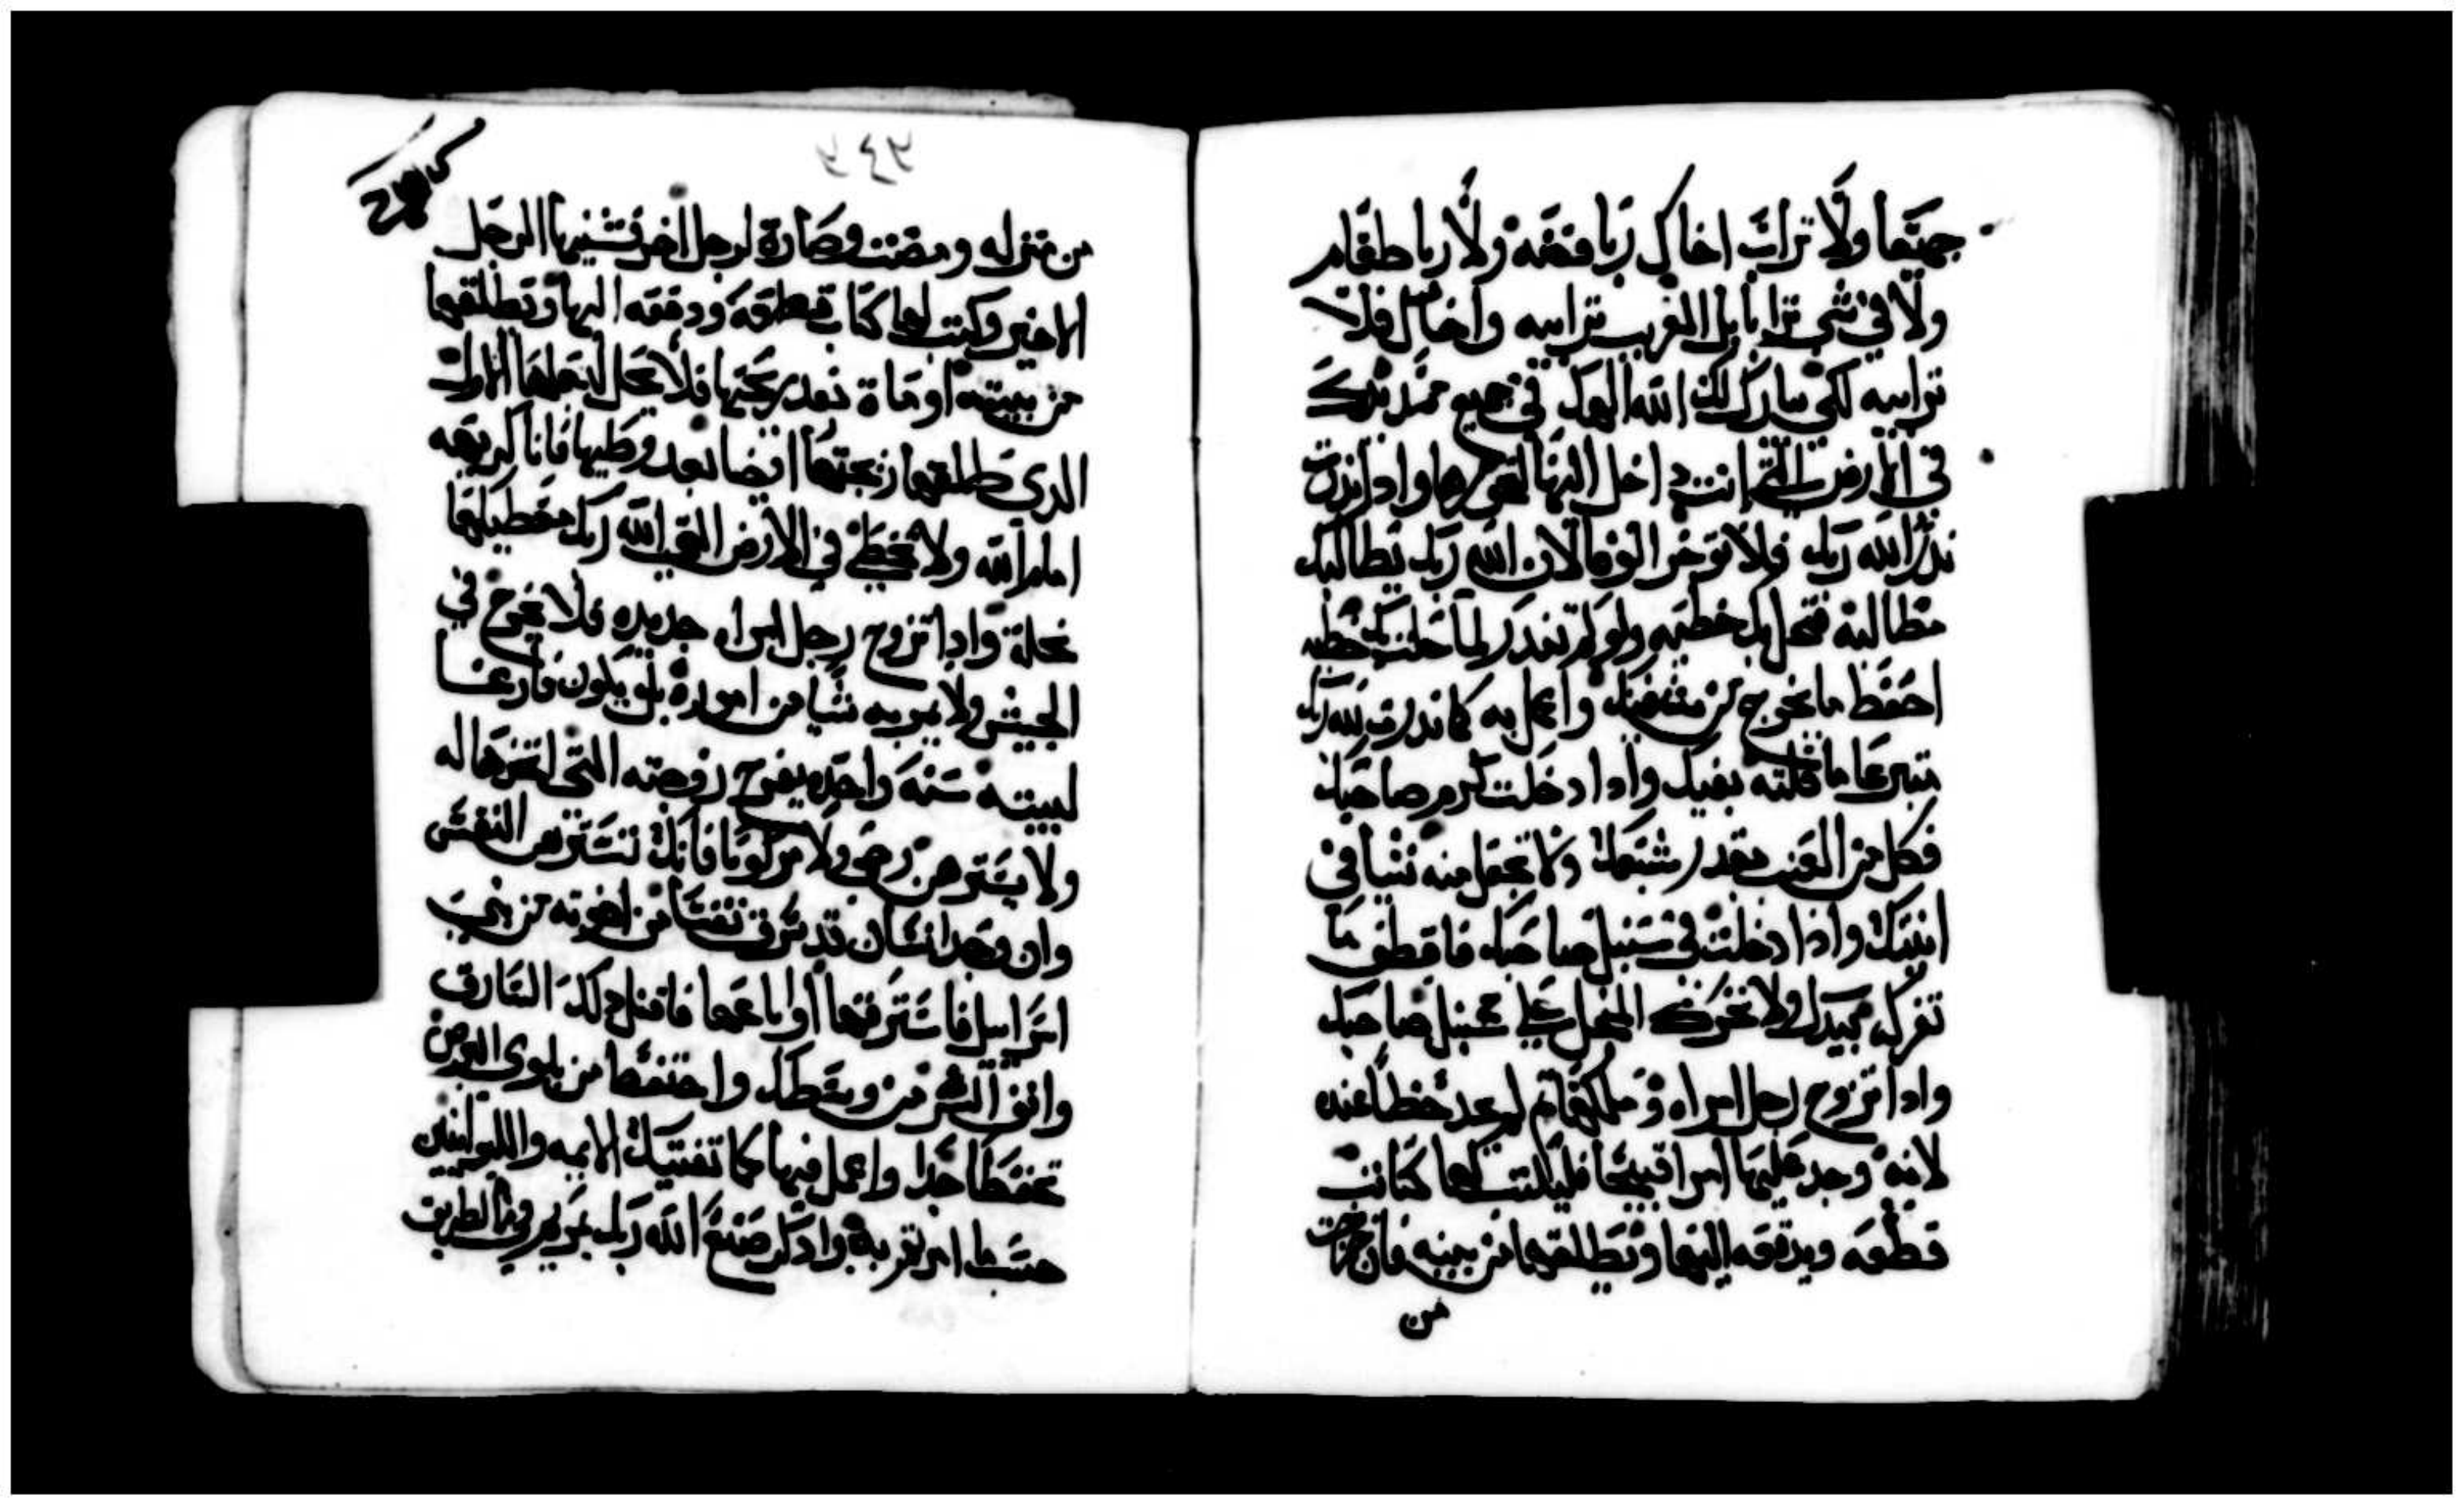 جميعا ولا تراب اخاك ربا فضه ولا ربا طعام
ولا في شي ترابا بل الغريب ترابيه واخاك فلا
ترابيه لكي يبارك لك الله الهك في جميع ممد يدك
في الارض التي انت داخل اليها لتعمرها واذا نذرت
نذرا لله ربك فلا توخر الوفا لان الله ربك يطالبك
مطالبه فتحل بك خطيه ولو لم تنذر لما حلت بك خطيه
احفظ ما يخرج من شفتيك واعمل به كما نذرت لله ربك
تبرعا ما قلته بفيك واذا دخلت كرم صاحبك
فكل من العنب بقدر شبعك ولا تجعل منه شيا في
انيتك واذا دخلت في سنبل صاحبك فاقطف ما
تفرك بيدك ولا تحرك المنجل على سنبل صاحبك
واذا تزوج رجل امراه وملكها ثم لم تجد حظا عنده
لانه وجد عليها امرا قبيحا فليكتب لها كتاب
قطعه ويدفعه اليها ويطلقها من بيته فان خرجت
من
٢٤٢
من منزله ومضت وصارة لرجل اخر فشنيها الرجل
الاخير وكتب لها كتاب قطعه ودفعه اليها وتطلقها
من بيته او ماة بعد رجتها فلا يحل لبعلها الاول
الدي طلقها زيجتها ايضا بعد وطيها فانا كريهه
امام الله ولا تخطي في الارض التي الله ربك معطيكها
نحلة واذا تزوج رجل امراه جديده فلا يخرج في
الجيش ولا يمر به شيا من اموره بل يكون فارغا
لبيته سنه واحده يفرح زوجته التي اتخذها له
ولا يسترهن رحي ولا مركوبا فانك تسترهن النفس
وان وجد انسان قد سرق نفسا من اخوته من بني
اسراييل فاسترقها او باعها فاقتل ذلك السارق
وانف الشر من وسطك واحتفظ من بلوي البرص
تحفظا جدا واعمل فيها كما تفتيك الايمه والليوانيين
حسب ما امرتهم به واذكر صنع الله ربك بمريم في الطريق